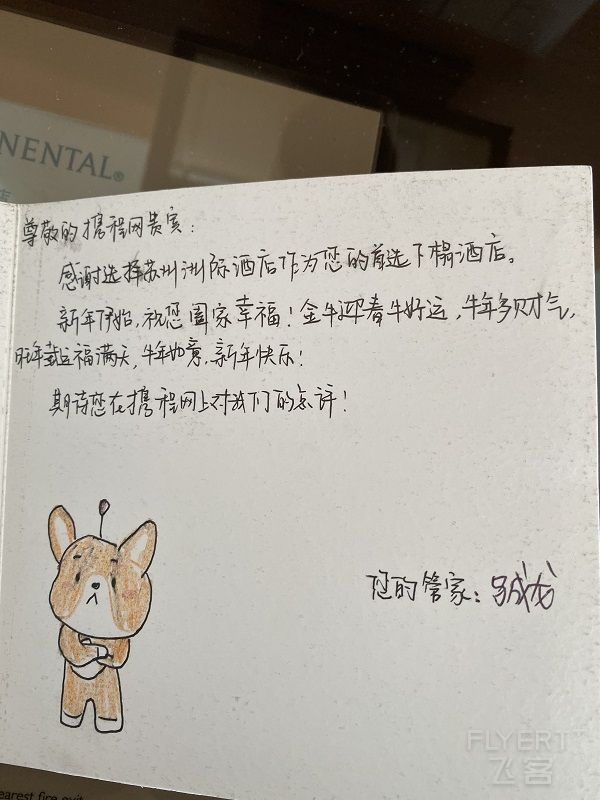 NENTAL®
尊敬的携程网贵宾:
感谢选择苏州洲际酒店作为您的首选下榻酒店。
新年伊始,祝您阖家幸福!金牛迎春牛好运,牛年多财气,
旺年鸿运福满天,牛年如意,新年快乐!
期待您在携程网上对我们的点评!
您的管家:
FLYERT
飞客
earest fire exit